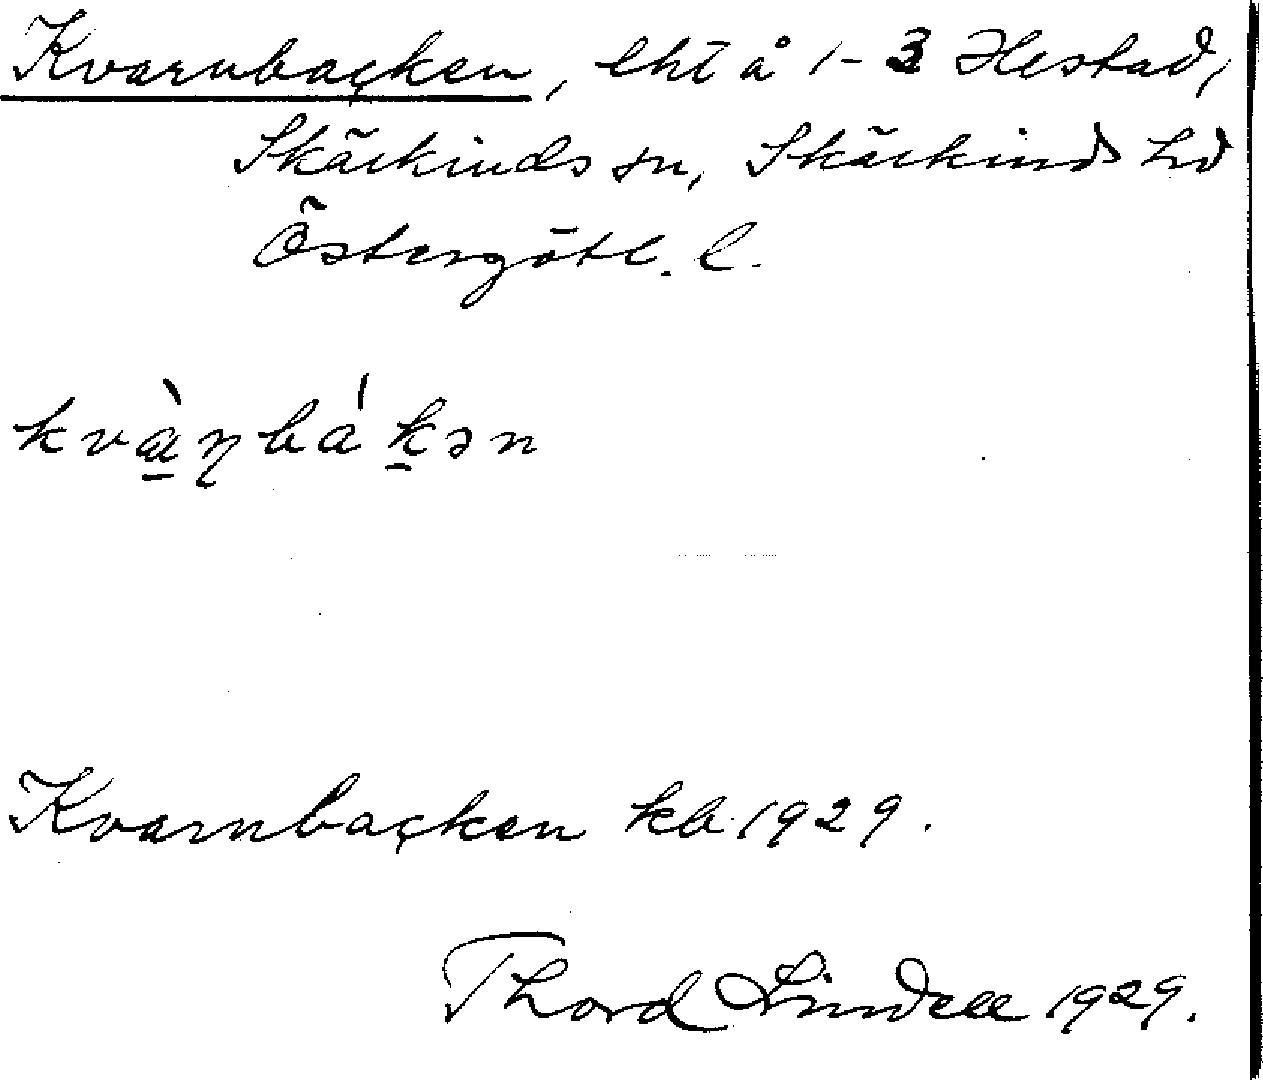 Kvarnbacken, lht å 1-3 Hestad,
Skärkinds sn, Skärkinds hd
Östergötl. l.
kvàɳbákən
Kvarnbacken kb. 1929.
Thord Lindell 1929.